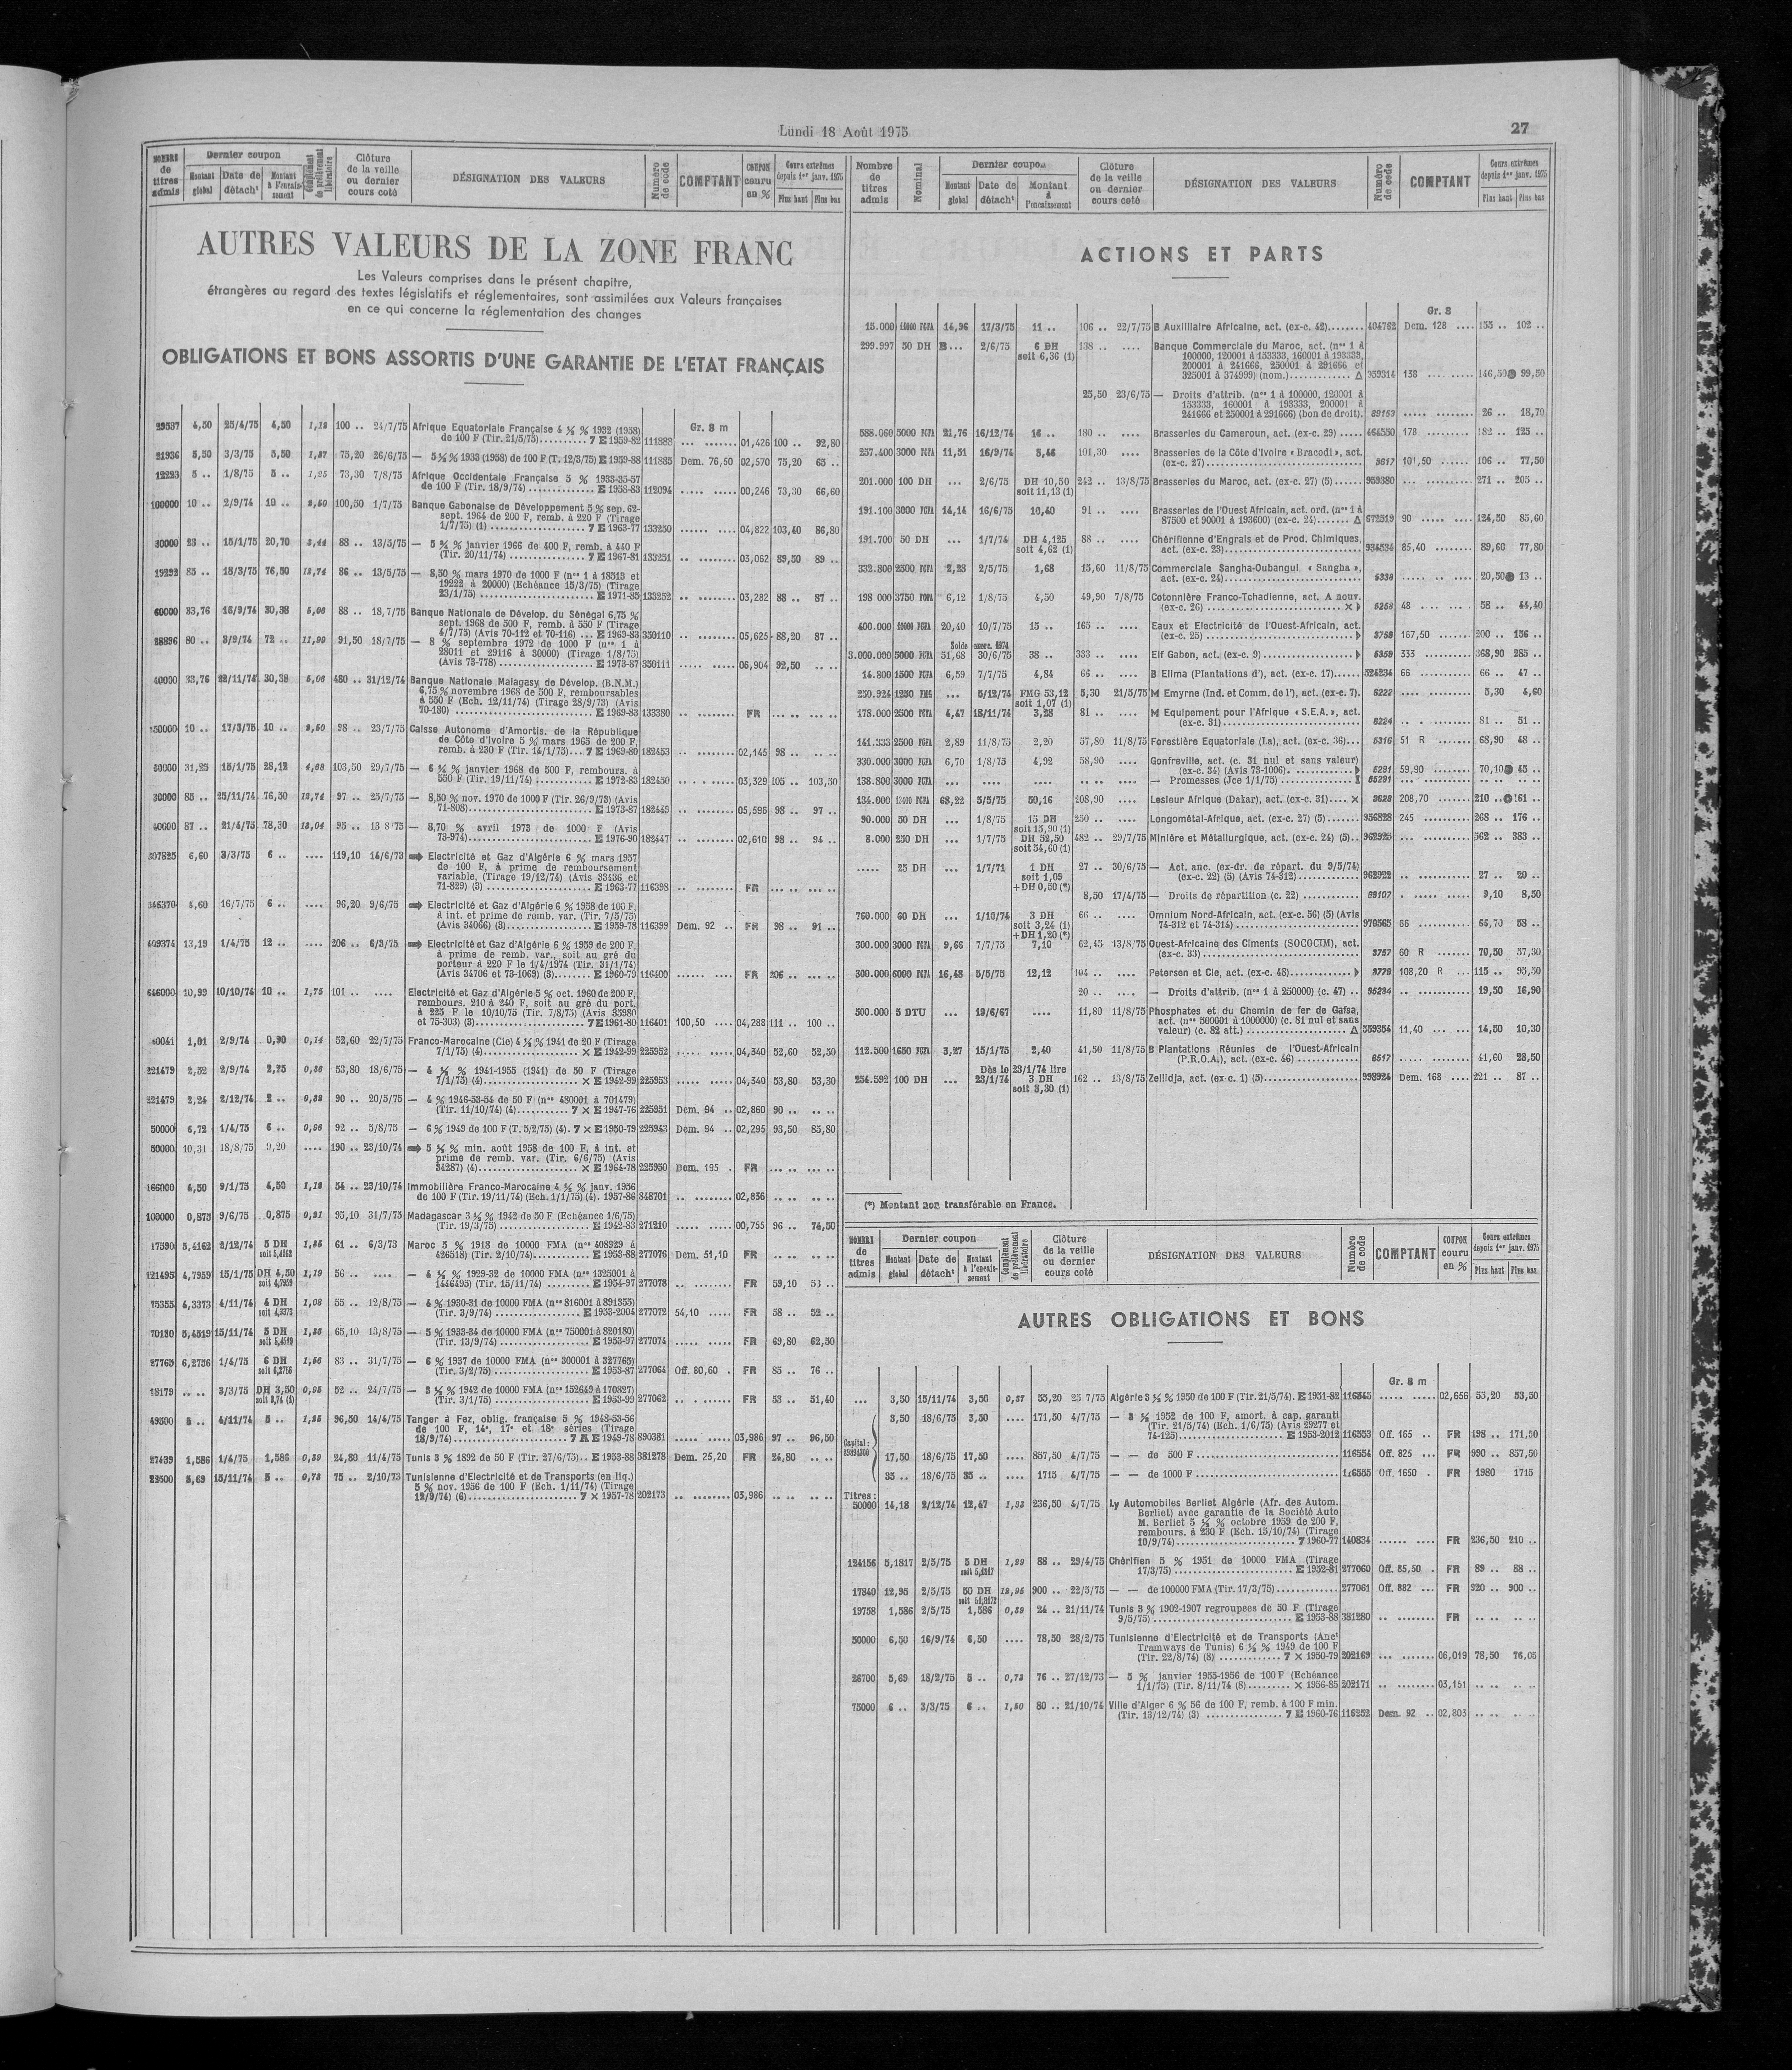 Lundi 18 Août 1975
27
NOMBRE de titres admis
Dernier coupon
Montant global
Date de détach¹
Montant à l'encaissement
Complément de prélèvement libératoire
Clôture de la veille ou dernier cours coté
DÉSIGNATION DES VALEURS
Numéro de code
COMPTANT
COUPON couru en %
Cours extrêmes depuis 1er janv. 1975
Plus haut
Plus bas
AUTRES VALEURS DE LA ZONE FRANC
Les Valeurs comprises dans le présent chapitre,
étrangères au regard des textes législatifs et réglementaires, sont assimilées aux Valeurs françaises
en ce qui concerne la réglementation des changes
OBLIGATIONS ET BONS ASSORTIS D'UNE GARANTIE DE L'ETAT FRANÇAIS
Gr. 8 m
29537 4,50 25/4/75 4,50 1,12 100 .. 24/7/75 Afrique Equatoriale Française 4 ½ % 1932 (1958)
de 100 F (Tir. 21/5/75).......... 7 E 1959-82 111883 ... ........ 01,426 100 .. 92,80
21936 5,50 3/3/75 5,50 1,37 75,20 26/6/75 — 5 ½ % 1933 (1958) de 100 F (T. 12/3/75) E 1959-88 111885 Dem. 76,50 02,570 75,20 65 ..
12223 5 .. 1/8/75 5 .. 1,25 73,30 7/8/75 Afrique Occidentale Française 5 % 1933-35-57
de 100 F (Tir. 18/9/74) ............. E 1958-83 112094 ..... ..... 00,246 73,30 66,60
100000 10 .. 2/9/74 10 .. 2,50 100,50 1/7/75 Banque Gabonaise de Développement 5 % sep. 62-
sept. 1964 de 200 F, remb. à 220 F (Tirage
1/7/75) (1) ..................... 7 E 1963-77 133250 ...... .... 04,822 103,40 86,80
30000 23 .. 15/1/75 20,70 3,44 88 .. 13/5/75 — 5 ¾ % janvier 1966 de 400 F, remb. à 440 F
(Tir. 20/11/74) ................ 7 E 1967-81 133251 .. ........ 03,062 89,50 89 ..
19292 85 .. 18/3/75 76,50 12,74 86 .. 13/5/75 — 8,50 % mars 1970 de 1000 F (nos 1 à 18513 et
19222 à 20000) (Echéance 15/3/75) (Tirage
23/1/75) ........................ E 1971-85 133252 .. ........ 03,282 88 .. 87 ..
60000 33,76 16/9/74 30,38 5,06 88 .. 18/7/75 Banque Nationale de Dévelop. du Sénégal 6,75 %
sept. 1968 de 500 F, remb. à 550 F (Tirage
4/7/75) (Avis 70-112 et 70-116) ... E 1969-83 350110 .. ........ 05,625 88,20 87 ..
28896 80 .. 3/9/74 72 .. 11,99 91,50 18/7/75 — 8 % septembre 1972 de 1000 F (nos 1 à
28011 et 29116 à 30000) (Tirage 1/8/75)
(Avis 73-778) ................... E 1973-87 350111 ..... ..... 06,904 92,50 .. ..
40000 33,76 22/11/74 30,38 5,06 480 .. 31/12/74 Banque Nationale Malagasy de Dévelop. (B.N.M.)
6,75 % novembre 1968 de 500 F, remboursables
à 550 F (Ech. 12/11/74) (Tirage 28/9/73) (Avis
70-180) ........................ E 1969-83 133380 .. ........ FR ... .. .. ..
150000 10 .. 17/3/75 10 .. 2,50 98 .. 23/7/75 Caisse Autonome d'Amortis. de la République
de Côte d'Ivoire 5 % mars 1965 de 200 F,
remb. à 230 F (Tir. 14/1/75)... 7 E 1969-80 182453 .. ........ 02,145 98 .. .. ..
50000 31,25 15/1/75 28,12 4,68 103,50 29/7/75 — 6 ¼ % janvier 1968 de 500 F, rembours. à
550 F (Tir. 19/11/74) ............ E 1972-83 182450 .. ........ 03,329 105 .. 103,50
30000 85 .. 25/11/74 76,50 12,74 97 .. 25/7/75 — 8,50 % nov. 1970 de 1000 F (Tir. 26/9/73) (Avis
71-808)......................... E 1973-87 182449 .. ........ 05,596 98 .. 97 ..
40000 87 .. 21/4/75 78,30 13,04 95 .. 13 8 75 — 8,70 % avril 1973 de 1000 F (Avis
73-974)......................... E 1976-90 182447 .. ........ 02,610 98 .. 94 ..
307825 6,60 3/3/75 6 .. .... 119,10 14/6/73 ➡ Electricité et Gaz d'Algérie 6 % mars 1957
de 100 F, à prime de remboursement
variable, (Tirage 19/12/74) (Avis 33436 et
71-829) (3) ..................... E 1963-77 116398 .. ........ FR ... .. .. ..
346370 4,60 16/7/75 6 .. .... 96,20 9/6/75 ➡ Electricité et Gaz d'Algérie 6 % 1958 de 100 F,
à int. et prime de remb. var. (Tir. 7/5/75)
(Avis 34066) (3)................. E 1959-78 116399 Dem. 92 .. FR 98 .. 91 ..
409374 13,19 1/4/75 12 .. .... 206 .. 6/3/75 ➡ Electricité et Gaz d'Algérie 6 % 1959 de 200 F,
à prime de remb. var., soit au gré du
porteur à 220 F le 1/4/1974 (Tir. 31/1/74)
(Avis 34706 et 73-1069) (3)....... E 1960-79 116400 ...... .... FR 206 .. ... ..
646000 10,99 10/10/74 10 .. 1,75 101 .. .... Electricité et Gaz d'Algérie 5 % oct. 1960 de 200 F,
rembours. 210 à 240 F, soit au gré du port.
à 225 F le 10/10/75 (Tir. 7/8/75) (Avis 35980
et 75-303) (3)................... 7 E 1961-80 116401 100,50 .... 04,288 111 .. 100 ..
40041 1,01 2/9/74 0,90 0,14 52,60 22/7/75 Franco-Marocaine (Cie) 4 ½ % 1941 de 20 F (Tirage
7/1/75) (4).................... × E 1942-99 225952 ..... ..... 04,340 52,60 52,50
221479 2,52 2/9/74 2,25 0,36 53,80 18/6/75 — 4 ½ % 1941-1955 (1941) de 50 F (Tirage
7/1/75) (4).................... × E 1942-99 225953 ..... ..... 04,340 53,80 53,30
221479 2,24 2/12/74 2 .. 0,32 90 .. 20/5/75 — 4 % 1946-53-54 de 50 F (nos 480001 à 701479)
(Tir. 11/10/74) (4)........... 7 × E 1947-76 225951 Dem. 94 .. 02,860 90 .. .. ..
50000 6,72 1/4/75 6 .. 0,96 92 .. 5/8/75 — 6 % 1949 de 100 F (T. 5/2/75) (4). 7 × E 1950-79 225943 Dem. 94 .. 02,295 93,50 85,80
50000 10,31 18/8/75 9,20 .... 190 .. 23/10/74 ➡ 5 ½ % min. août 1958 de 100 F, à int. et
prime de remb. var. (Tir. 6/6/75) (Avis
34287) (4).................... × E 1964-78 225950 Dem. 195 . FR ... .. .. ..
166000 4,50 9/1/75 4,50 1,12 54 .. 23/10/74 Immobilière Franco-Marocaine 4 ½ % janv. 1956
de 100 F (Tir. 19/11/74) (Ech. 1/1/75) (4). 1957-86 348701 .. ........ 02,836 .. .. .. ..
100000 0,875 9/6/75 0,875 0,21 95,10 31/7/75 Madagascar 3 ½ % 1942 de 50 F (Echéance 1/6/75)
(Tir. 19/3/75) .................. E 1942-83 271210 ..... ..... 00,755 96 .. 74,50
17590 5,4162 2/12/74 5 DH soit 5,4162 1,35 61 .. 6/3/73 Maroc 5 % 1918 de 10000 FMA (nos 408929 à
426518) (Tir. 2/10/74)........... E 1953-88 277076 Dem. 51,10 FR .. .. .. ..
121495 4,7959 15/1/75 DH 4,50 soit 4,7959 1,19 56 .. .... — 4 ½ % 1929-32 de 10000 FMA (nos 1325001 à
1446495) (Tir. 15/11/74) ......... E 1954-97 277078 .. ........ FR 59,10 53 ..
75355 4,3373 4/11/74 4 DH soit 4,3373 1,08 55 .. 12/8/75 — 4 % 1930-31 de 10000 FMA (nos 816001 à 891355)
(Tir. 3/9/74) .................. E 1953-2004 277072 54,10 ..... FR 58 .. 52 ..
70180 5,4519 15/11/74 5 DH soit 5,4519 1,36 65,10 13/8/75 — 5 % 1933-34 de 10000 FMA (nos 750001 à 820180)
(Tir. 13/9/74) .................. E 1953-97 277074 ..... ..... FR 69,80 62,50
27765 6,2756 1/4/75 6 DH soit 6,2756 1,56 83 .. 31/7/75 — 6 % 1937 de 10000 FMA (nos 300001 à 327765)
(Tir. 3/2/75) ................... E 1953-87 277064 Off. 80,60 . FR 85 .. 76 ..
18179 .. .. 3/3/75 DH 3,50 soit 3,74 (1) 0,95 52 .. 24/7/75 — 3 ½ % 1942 de 10000 FMA (nos 152649 à 170827)
(Tir. 3/1/75) ................... E 1953-99 277062 .. ........ FR 53 .. 51,40
49500 5 .. 4/11/74 5 .. 1,25 96,50 14/4/75 Tanger à Fez, oblig. française 5 % 1948-53-56
de 100 F, 14e, 17e et 18e séries (Tirage
18/9/74) ....................... 7 A E 1949-78 890381 ..... ..... 03,986 97 .. 96,50
27439 1,586 1/4/75 1,586 0,39 24,80 11/4/75 Tunis 3 % 1892 de 50 F (Tir. 27/6/75).. E 1953-88 381278 Dem. 25,20 FR 24,80 .. ..
23500 5,69 15/11/74 5 .. 0,73 75 .. 2/10/73 Tunisienne d'Electricité et de Transports (en liq.)
5 % nov. 1956 de 100 F (Ech. 1/11/74) (Tirage
12/9/74) (6)...................... 7 × 1957-78 202173 .. ........ 03,986 .. .. .. ..
Nombre de titres admis
Nominal
Dernier coupon
Montant global
Date de détach¹
Montant à l'encaissement
Clôture de la veille ou dernier cours coté
DÉSIGNATION DES VALEURS
Numéro de code
COMPTANT
Cours extrêmes depuis 1er janv. 1975
Plus haut
Plus bas
ACTIONS ET PARTS
Gr. 8
15.000 FCFA 14,96 17/3/75 11 .. 106 .. 22/7/75 B Auxiliaire Africaine, act. (ex-c. 42)....... 404762 Dem. 128 .... 155 .. 102 ..
299.997 50 DH B... 2/6/75 6 DH soit 6,36 (1) 138 .. .... Banque Commerciale du Maroc, act. (nos 1 à
100000, 120001 à 153333, 160001 à 193333,
200001 à 241666, 250001 à 291666 et
325001 à 374999) (nom.)............. Δ 959314 138 ... ..... 146,50 99,50
25,50 23/6/75 — Droits d'attrib. (nos 1 à 100000, 120001 à
153333, 160001 à 193333, 200001 à
241666 et 250001 à 291666) (bon de droit). 89153 ..... ........ 26 .. 18,70
588.060 5000 FCFA 21,76 16/12/74 16 .. 180 .. .... Brasseries du Cameroun, act. (ex-c. 29) ..... 464550 178 ........ 182 .. 125 ..
257.400 3000 FCFA 11,51 16/9/74 8,46 101,30 .... Brasseries de la Côte d'Ivoire « Bracodi », act.
(ex-c. 27)................................ 9617 101,50 ...... 106 .. 77,50
201.000 100 DH ... 2/6/75 DH 10,50 soit 11,13 (1) 242 .. 13/8/75 Brasseries du Maroc, act. (ex-c. 27) (5) ...... 959380 ... ........ 271 .. 205 ..
191.100 3000 FCFA 14,14 16/6/75 10,40 91 .. .... Brasseries de l'Ouest Africain, act. ord. (nos 1 à
87500 et 90001 à 193600) (ex-c. 24)....... Δ 672519 90 ..... .... 124,50 85,60
191.700 50 DH 1/7/74 DH 4,125 soit 4,62 (1) 88 .. .... Chérifienne d'Engrais et de Prod. Chimiques,
act. (ex-c. 23)............................ 934534 85,40 ........ 89,60 77,80
332.800 2500 FCFA 2,28 2/5/75 1,68 15,60 11/8/75 Commerciale Sangha-Oubangui « Sangha »,
act. (ex-c. 24)............................ 5338 ..... .. .. 20,50 13 ..
198 000 3750 FCFA 6,12 1/8/75 4,50 49,90 7/8/75 Cotonnière Franco-Tchadienne, act. A nouv.
(ex-c. 26) ............................ × 5258 48 .... ..... 58 .. 44,40
400.000 10000 FCFA 20,40 10/7/75 15 .. 165 .. .... Eaux et Electricité de l'Ouest-Africain, act.
(ex-c. 25) ............................... 3758 167,50 ...... 200 .. 156 ..
Solde exerc. 1974
3.000.000 5000 FCFA 51,68 30/6/75 38 .. 333 .. .... Elf Gabon, act. (ex-c. 9) ................... 5359 333 ........ 368,90 285 ..
14.800 1500 FCFA 6,59 7/7/75 4,84 66 .. .... B Elima (Plantations d'), act. (ex-c. 17)...... 324234 66 ........ 66 .. 47 ..
250.924 1250 FMG ... 5/12/74 FMG 53,12 soit 1,07 (1) 5,30 21/5/75 M Emyrne (Ind. et Comm. de l'), act. (ex-c. 7). 6222 .... ........ 5,30 4,60
178.000 2500 FCFA 4,47 18/11/74 3,28 81 .. .... M Equipement pour l'Afrique « S.E.A. », act.
(ex-c. 31)............................... 6224 .. . ........ 81 .. 51 ..
141.333 2500 FCFA 2,89 11/8/75 2,20 57,80 11/8/75 Forestière Equatoriale (La), act. (ex-c. 36)... 5316 51 R ....... 68,90 48 ..
330.000 3000 FCFA 6,70 1/8/75 4,92 58,90 .... Gonfreville, act. (c. 31 nul et sans valeur)
(ex-c. 34) (Avis 73-1006)................. 5291 59,90 ........ 70,10 45 ..
138.800 3000 FCFA ... .... .... .... .... — Promesses (Jce 1/1/75) ................ I 65291 ... ........ .. .. .. ..
134.000 FCFA 68,22 5/5/75 50,16 208,90 .... Lesieur Afrique (Dakar), act. (ex-c. 31).... × 3628 208,70 ....... 210 .. 161 ..
90.000 50 DH ... 1/8/75 15 DH soit 15,90 (1) 250 .. .... Longométal-Afrique, act. (ex-c. 27) (5)....... 956828 245 ........ 268 .. 176 ..
8.000 250 DH ... 1/7/75 DH 52,50 soit 54,60 (1) 482 .. 29/7/75 Minière et Métallurgique, act. (ex-c. 24) (5).. 962925 ... ........ 562 .. 383 ..
..... 25 DH ... 1/7/71 1 DH soit 1,09 + DH 0,50 (*) 27 .. 30/6/75 — Act. anc. (ex-dr. de répart. du 9/5/74)
(ex-c. 22) (5) (Avis 74-312)............ 962922 .. ........ 27 .. 20 ..
8,50 17/4/75 — Droits de répartition (c. 22) ............ 89107 . ..... .... 9,10 8,50
760.000 60 DH ... 1/10/74 3 DH soit 3,24 (1) + DH 1,20 (*) 66 .. .... Omnium Nord-Africain, act. (ex-c. 56) (5) (Avis
74-312 et 74-314)........................ 970565 66 ......... 66,70 58 ..
300.000 3000 FCFA 9,66 7/7/75 7,10 62,45 13/8/75 Ouest-Africaine des Ciments (SOCOCIM), act.
(ex-c. 33)............................... 3757 60 R ....... 70,50 57,30
300.000 6000 FCFA 16,48 5/5/75 12,12 104 .. .... Petersen et Cie, act. (ex-c. 48)............. 3779 108,20 R ... 115 .. 95,50
20 .. .... — Droits d'attrib. (nos 1 à 250000) (c. 47) .. 95234 .. ........... 19,50 16,90
500.000 5 DTU ... 19/6/67 .... 11,80 11/8/75 Phosphates et du Chemin de fer de Gafsa,
act. (nos 500001 à 1000000) (c. 81 nul et sans
valeur) (c. 82 att.) .................... Δ 559354 11,40 ... ... 14,50 10,30
112.500 1650 FCFA 3,27 15/1/75 2,40 41,50 11/8/75 B Plantations Réunies de l'Ouest-Africain
(P.R.O.A.), act. (ex-c. 46) ............. 6517 ..... ........ 41,60 28,50
Dès le 23/1/74 lire
254.592 100 DH ... 23/1/74 3 DH soit 3,30 (1) 162 .. 13/8/75 Zellidja, act. (ex-c. 1) (5)................... 998924 Dem. 168 .... 221 .. 87 ..
(*) Montant non transférable en France.
NOMBRE de titres admis
Dernier coupon
Montant global
Date de détach¹
Montant à l'encaissement
Complément de prélèvement libératoire
Clôture de la veille ou dernier cours coté
DÉSIGNATION DES VALEURS
Numéro de code
COMPTANT
COUPON couru en %
Cours extrêmes depuis 1er janv. 1975
Plus haut
Plus bas
AUTRES OBLIGATIONS ET BONS
Gr. 8 m
... 3,50 15/11/74 3,50 0,87 55,20 25 7/75 Algérie 3 ½ % 1950 de 100 F (Tir. 21/5/74). E 1951-82 116845 ..... ..... 02,656 55,20 53,50
Capital :
3,50 18/6/75 3,50 .... 171,50 4/7/75 — 3 ½ 1952 de 100 F, amort. à cap. garanti
(Tir. 21/5/74) (Ech. 1/6/75) (Avis 29277 et
74-125)......................... E 1953-2012 116553 Off. 165 .. FR 198 .. 171,50
17,50 18/6/75 17,50 .... 857,50 4/7/75 — — de 500 F ........................... 116554 Off. 825 ... FR 990 .. 857,50
35 .. 18/6/75 35 .. .... 1715 4/7/75 — — de 1000 F ........................... 116555 Off. 1650 . FR 1980 1715
Titres :
50000 14,18 2/12/74 12,47 1,83 236,50 4/7/75 Ly Automobiles Berliet Algérie (Afr. des Autom.
Berliet) avec garantie de la Société Auto
M. Berliet 5 ½ % octobre 1959 de 200 F,
rembours. à 230 F (Ech. 15/10/74) (Tirage
10/9/74)........................ 7 1960-77 140834 ...... .... FR 236,50 210 ..
124156 5,1817 2/5/75 5 DH soit 5,1817 1,29 88 .. 29/4/75 Chérifien 5 % 1951 de 10000 FMA (Tirage
17/3/75) ........................ E 1952-81 277060 Off. 85,50 . FR 89 .. 58 ..
17840 12,95 2/5/75 50 DH soit 51,8172 12,95 900 .. 22/5/75 — — de 100000 FMA (Tir. 17/3/75) ............ 277061 Off. 882 ... FR 920 .. 900 ..
19758 1,586 2/5/75 1,586 0,39 24 .. 21/11/74 Tunis 3 % 1902-1907 regroupées de 50 F (Tirage
9/5/75) ........................ E 1953-88 381280 .. ........ FR .. .. .. ..
50000 6,50 16/9/74 6,50 .... 78,50 28/2/75 Tunisienne d'Electricité et de Transports (Anct
Tramways de Tunis) 6 ½ % 1949 de 100 F
(Tir. 22/8/74) (8) ............ 7 × 1950-79 202169 ... ....... 06,019 78,50 76,05
26700 5,69 18/2/75 5 .. 0,73 76 .. 27/12/73 — 5 % janvier 1955-1956 de 100 F (Echéance
1/1/75) (Tir. 8/11/74 (8)......... × 1956-85 202171 .. ........ 03,151 .. .. .. ..
75000 6 .. 3/3/75 6 .. 1,50 80 .. 21/10/74 Ville d'Alger 6 % 56 de 100 F, remb. à 100 F min.
(Tir. 13/12/74) (3) ............... 7 E 1960-76 116252 Dem. 92 .. 02,803 .. .. .. ..